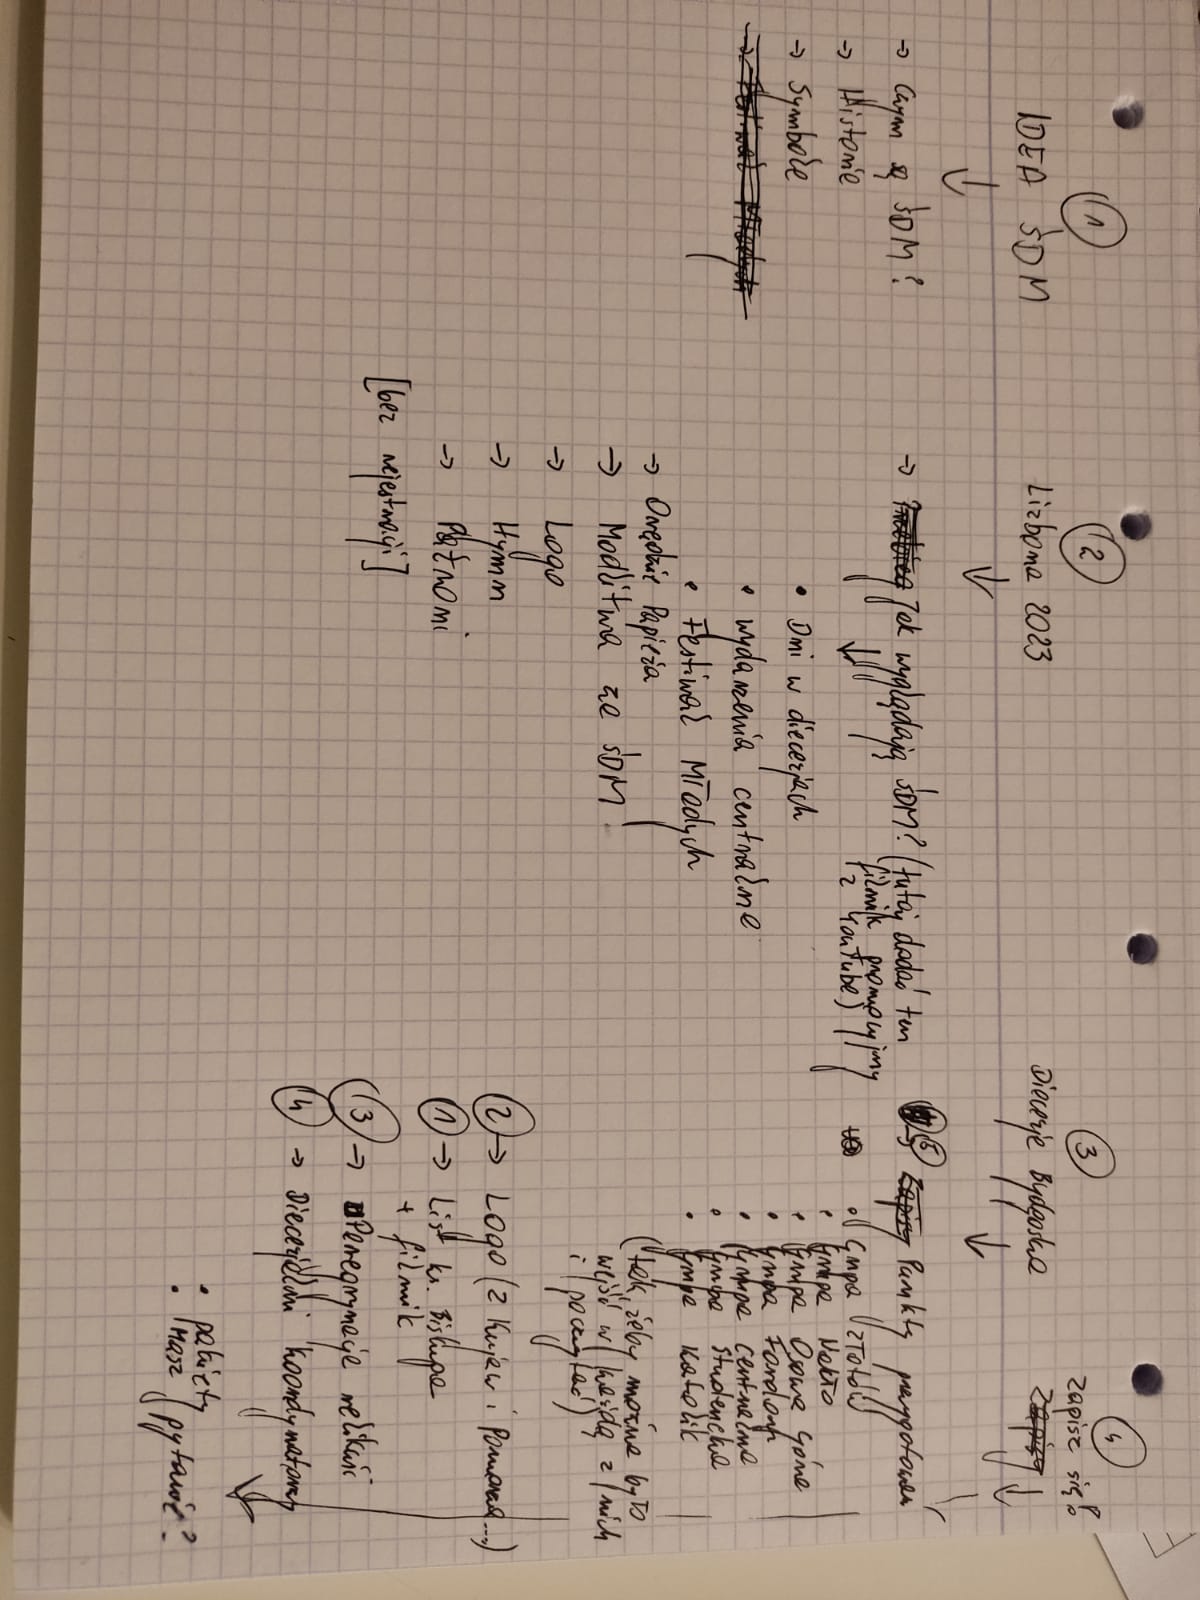 1
IDEA ŚDM
→ Czym są ŚDM?
→ Historia
→ Symbole
→ Festiwal Młodych
2
Lizbona 2023
→ Przebieg Jak wyglądają ŚDM? (tutaj dodać ten
filmik promocyjny
z YouTube)
• Dni w diecezjach
• wydarzenia centralne
• Festiwal Młodych
→ Orędzie Papieża
→ Modlitwa za ŚDM
→ Logo
→ Hymn
→ Patroni
[bez rejestracji]
3
Diecezja Bydgoska
5 → Zapisy Punkty przygotowań
• Grupa Złotów
• Grupa Nakło
• Grupa Osowa Góra
• Grupa Fordon
• Grupa centralna
• Grupa Studencka
• Grupa Katolik
(tak, żeby można było
wejść w każdą z nich
i poczytać)
2 → Logo (z Kujaw i Pomorza...)
1 → List ks. Biskupa
+ filmik
3 → Peregrynacja relikwii
4 → Diecezjalni koordynatorzy
4
Zapisz się!
Zapisy
• pakiety
• Masz pytanie?